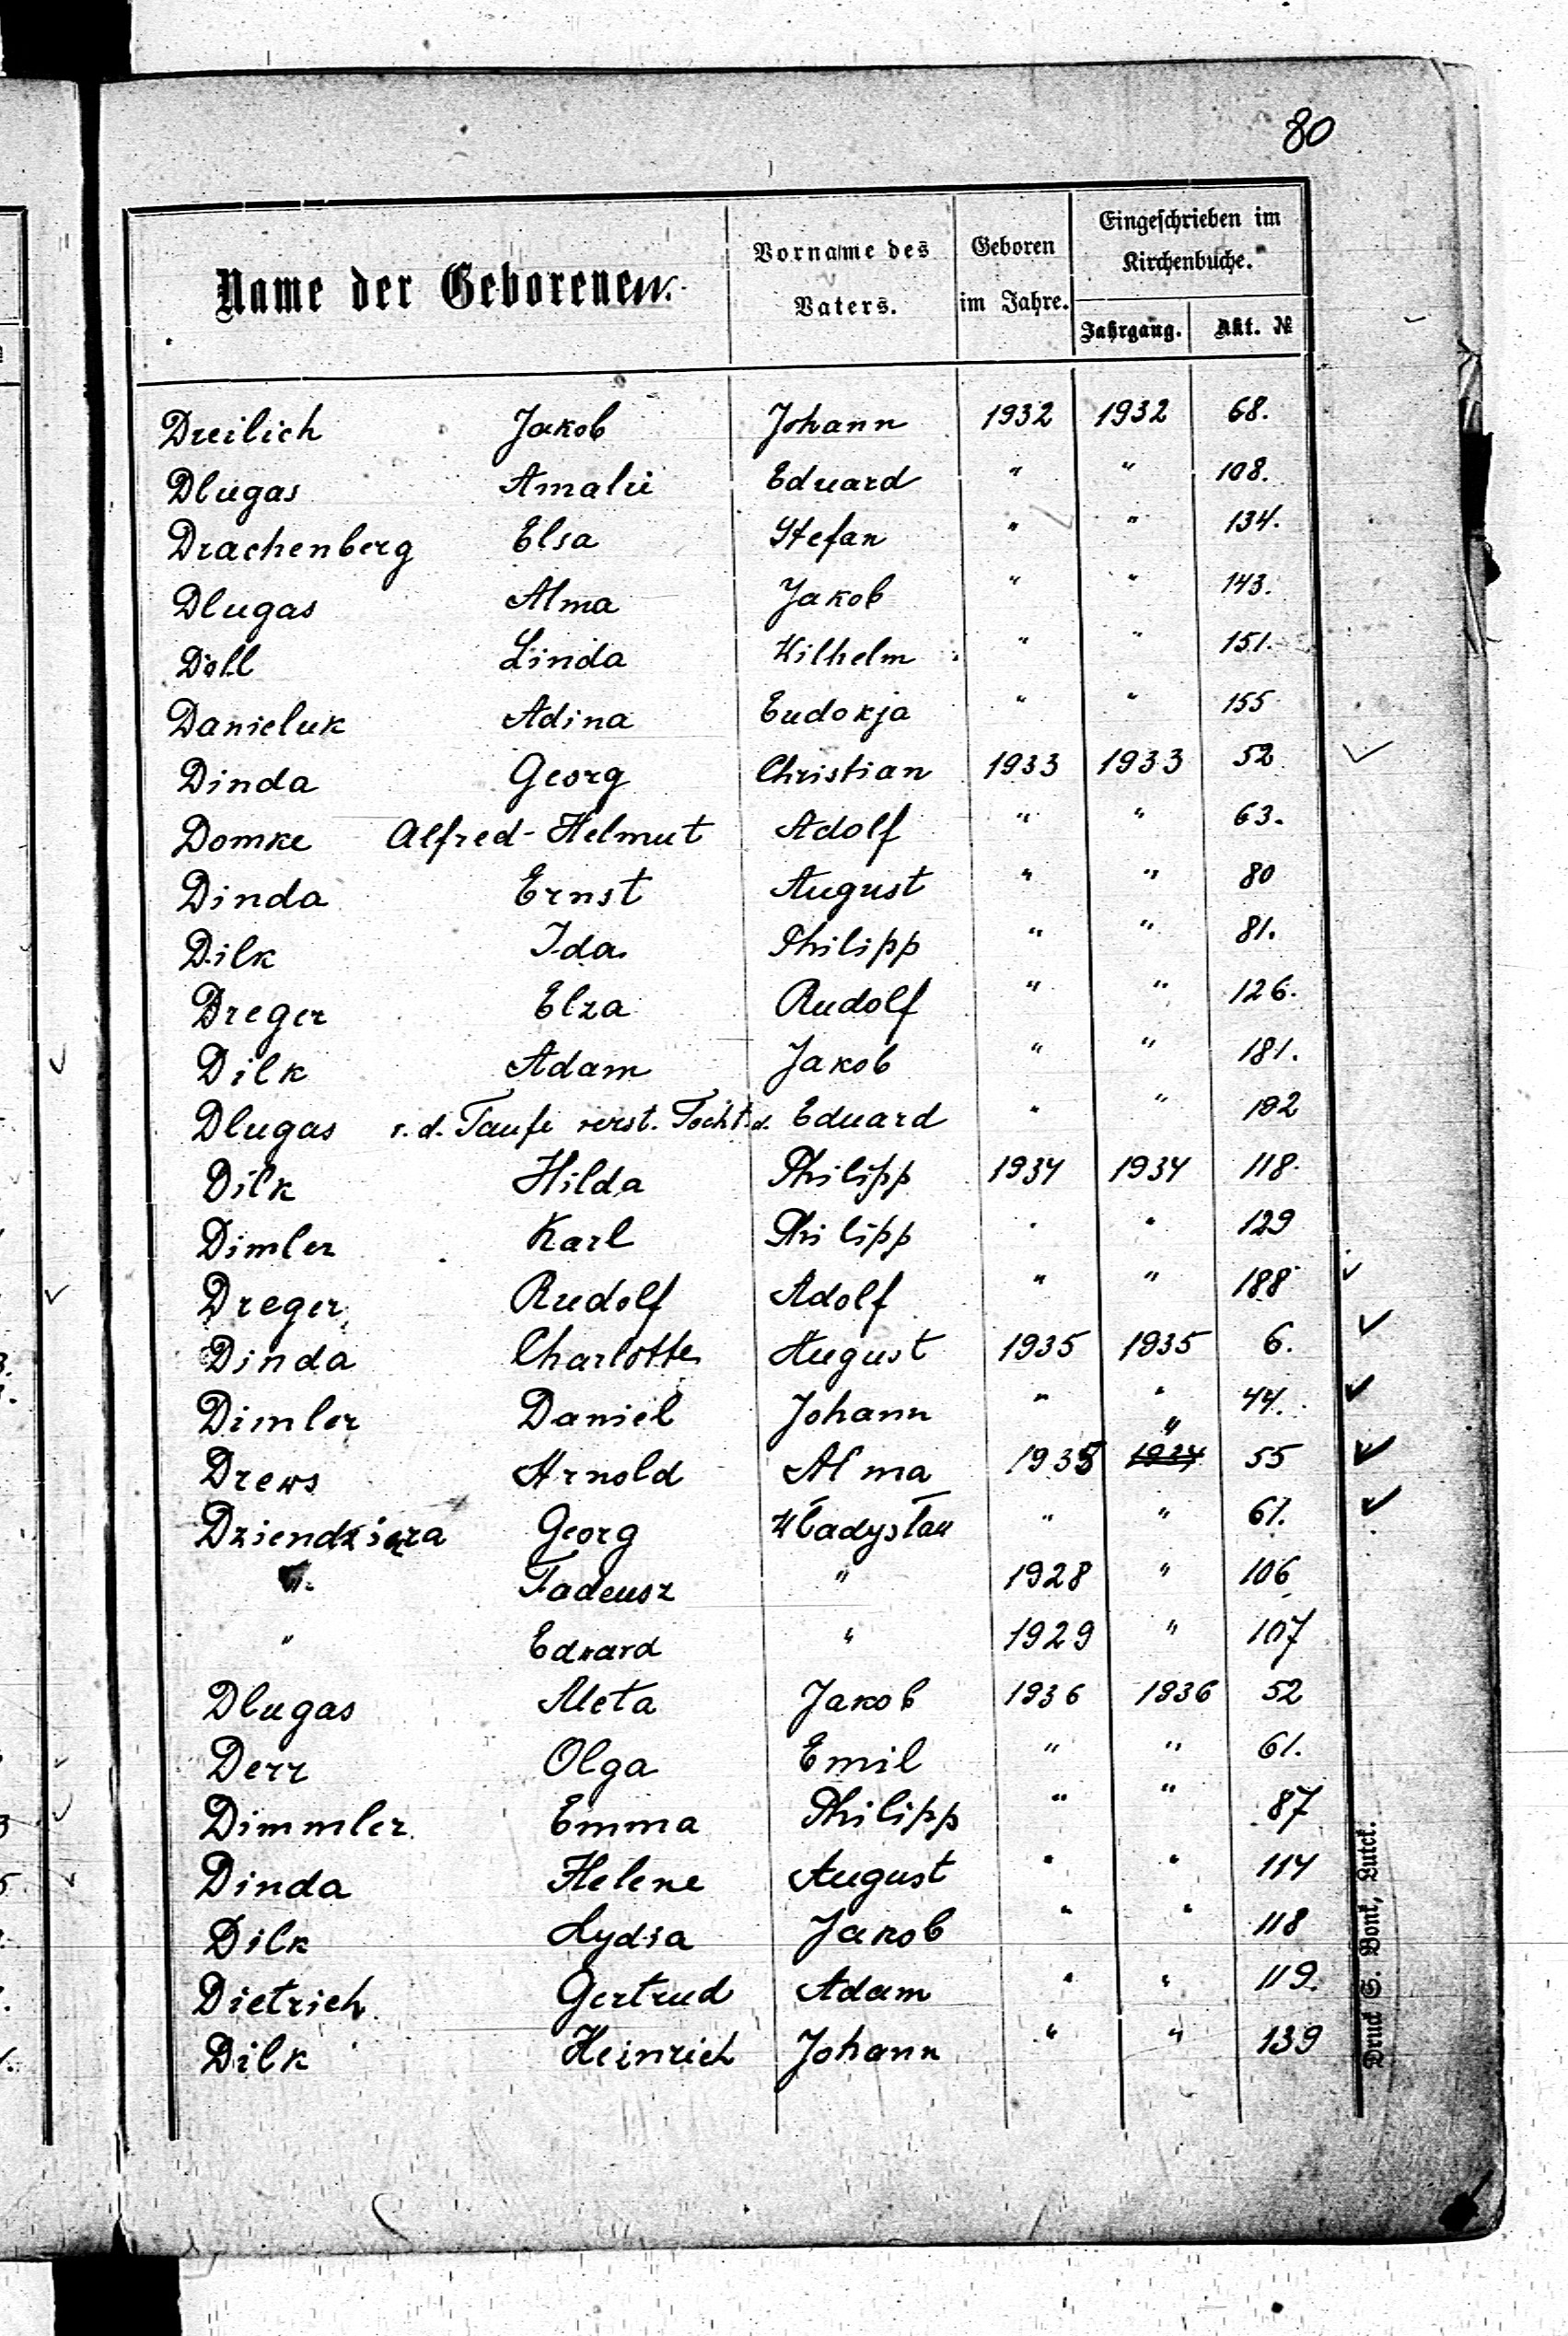 80
Name der Geborenen.
Vorname des Vaters.
Geboren im Jahre.
Eingeschrieben im Kirchenbuche.
Jahrgang.
Akt. №
Dreilich Jakob Johann 1932 1932 68.
Dlugas Amalie Eduard " " 108.
Drachenberg Elsa Stefan " " 134.
Dlugas Alma Jakob " " 143.
Döll Linda Wilhelm " " 151.
Danieluk Adina Eudokja " " 155
Dinda Georg Christian 1933 1933 52
Domke Alfred-Helmut Adolf " " 63.
Dinda Ernst August " " 80
Dilk Ida Philipp " " 81.
Dreger Elza Rudolf " " 126.
Dilk Adam Jakob " " 181.
Dlugas v. d. Taufe verst. Tocht. d. Eduard " " 192
Dilk Hilda Philipp 1934 1934 118.
Dimler Karl Philipp " " 129
Dreger Rudolf Adolf " " 188
Dinda Charlotte August 1935 1935 6.
Dimler Daniel Johann " " 44.
Drews Arnold Alma 1935 " 1934 55
Dziendziera Georg Władysław " " 61.
" Tadeusz " 1928 " 106
" Edward " 1929 " 107
Dlugas Meta Jakob 1936 1936 52
Derr Olga Emil " " 61.
Dimmler Emma Philipp " " 87
Dinda Helene August " " 114
Dilk Lydia Jakob " " 118
Dietrich Gertrud Adam " " 119.
Dilk Heinrich Johann " " 139
Druck S. Bonk, Luck.